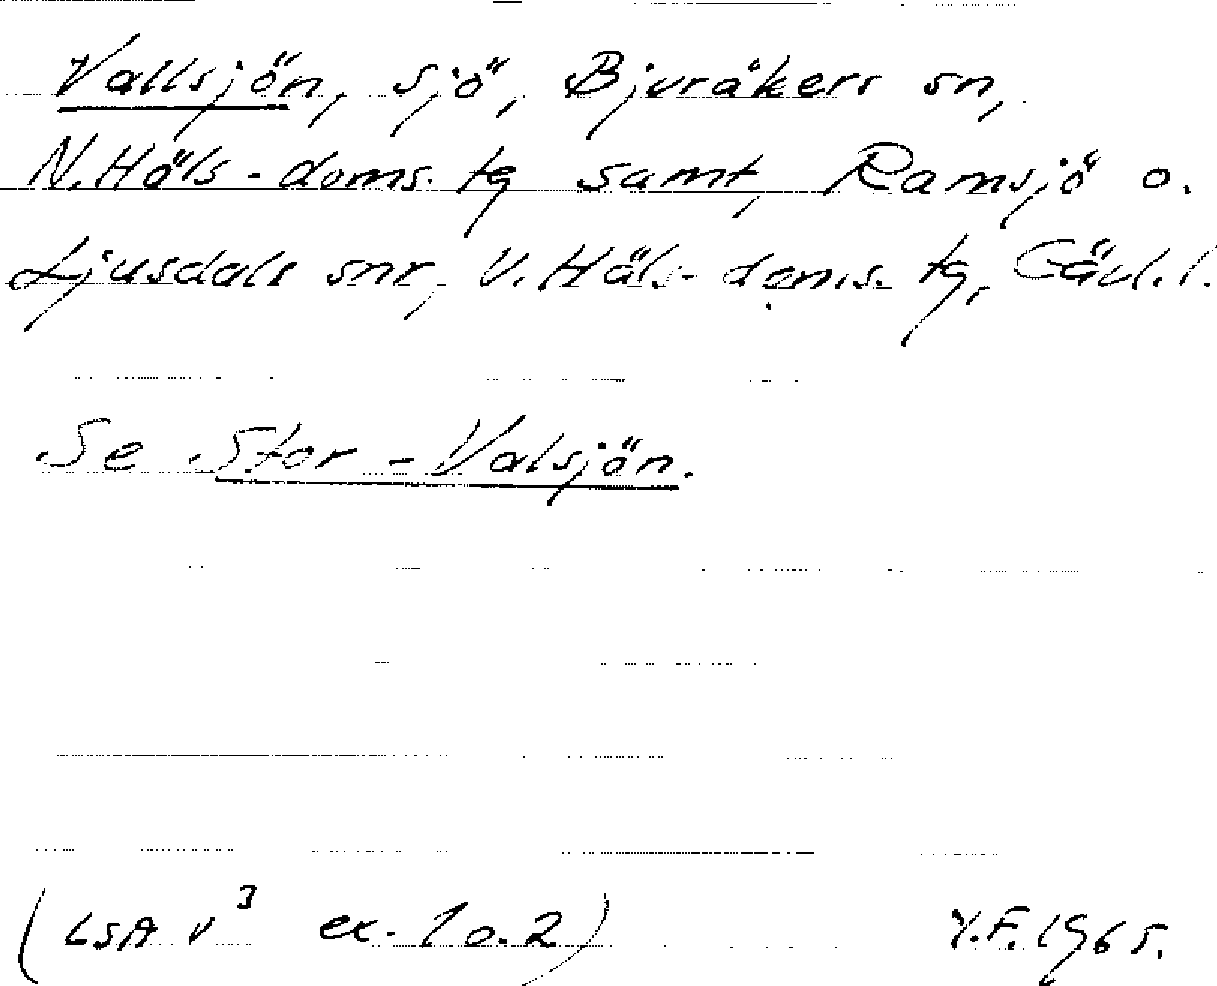 Vallsjön, sjö, Bjuråkers sn,
N.Häls-doms. tg samt, Ramsjö o.
Ljusdals snr, V.Häls-doms. tg, Gävl.l.
Se Stor-Valsjön.
(LSA V³ ex. 1 o. 2) Y.F. 1965.